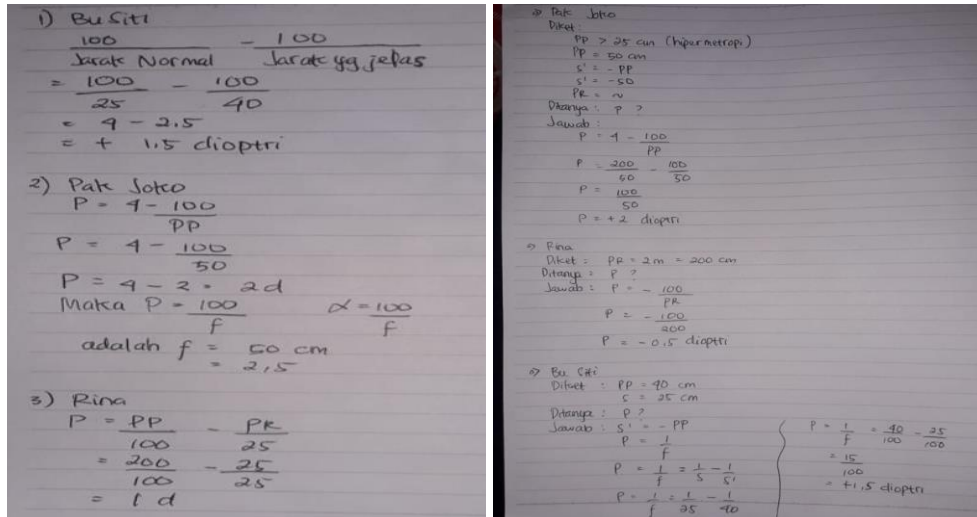 1) Bu Siti
100 / Jarak Normal - 100 / Jarak yg jelas
= 100/25 - 100/40
= 4 - 2.5
= + 1,5 dioptri
2) Pak Joko
P = 4 - 100/PP
P = 4 - 100/50
P = 4 - 2 = 2d
Maka P = 100/f α = 100/f
adalah f = 50 cm
= 2,5
3) Rina
P = PP/100 - PR/25
= 200/100 - 25/25
= 1 d
=> Pak Joko
Diket:
PP > 25 cm (hipermetropi)
PP = 50 cm
s' = - PP
s' = -50
PR = ~
Ditanya : P ?
Jawab :
P = 4 - 100/PP
P = 200/50 - 100/50
P = 100/50
P = +2 dioptri
=> Rina
Diket : PR = 2m = 200 cm
Ditanya : P ?
Jawab : P = - 100/PR
P = - 100/200
P = - 0,5 dioptri
=> Bu Siti
Diket : PP = 40 cm
s = 25 cm
Ditanya : P ?
Jawab : s' = - PP
P = 1/f
P = 1/f = 1/s - 1/s'
P = 1/f = 1/25 - 1/40
P = 1/f = 40/100 - 25/100
= 15/100
= +1,5 dioptri